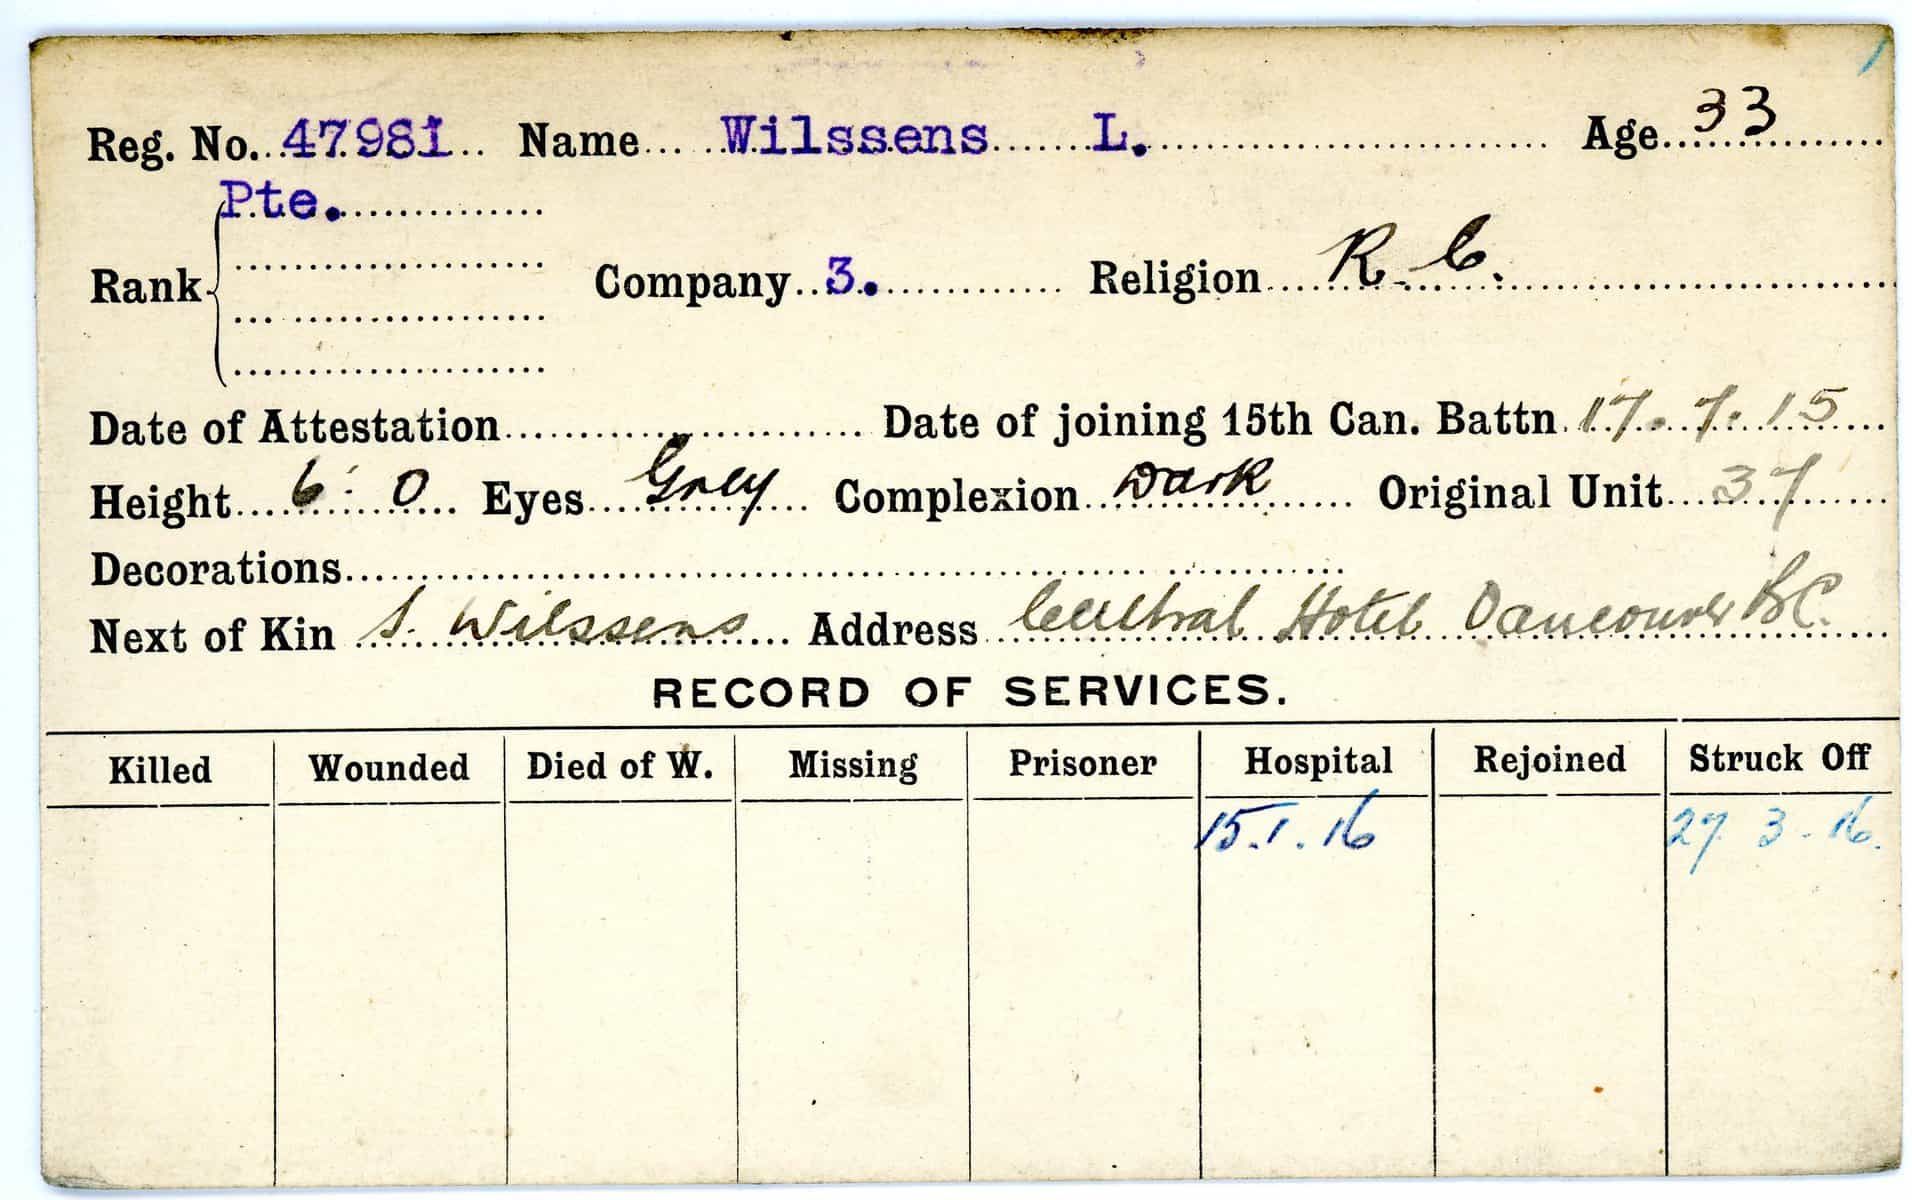 Reg. No. 47981 Name Wilssens L. Age 33
Pte.
Rank Company 3. Religion R.C.
Date of Attestation Date of joining 15th Can. Battn. 17.7.15
Height 6' 0 Eyes Grey Complexion Dark Original Unit 37
Decorations
Next of Kin S. Wilssens Address Central Hotel Vancouver BC.
RECORD OF SERVICES.
Killed Wounded Died of W. Missing Prisoner Hospital Rejoined Struck Off
15.1.16 27 3-16.